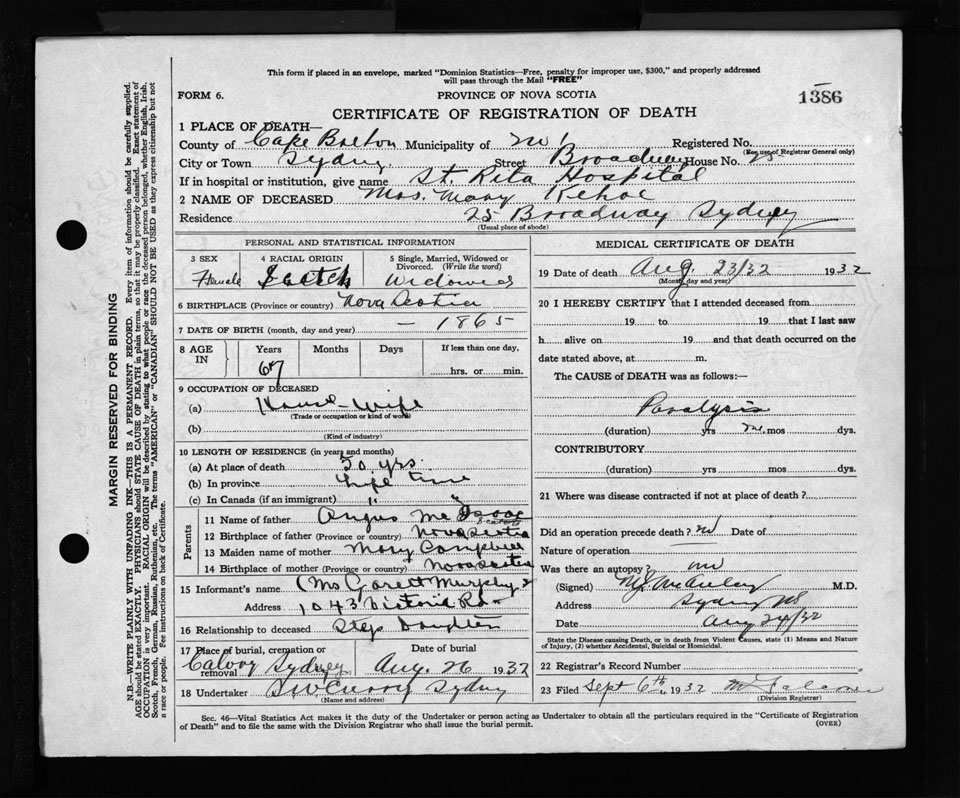 This form if placed in an envelope, marked "Dominion Statistics—Free, penalty for improper use, $300," and properly addressed
will pass through the Mail "FREE"
FORM 6. PROVINCE OF NOVA SCOTIA 1386
CERTIFICATE OF REGISTRATION OF DEATH
1 PLACE OF DEATH—
County of Cape Breton Municipality of Registered No.
(For use of Registrar General only)
City or Town Sydney Street Broadway House No. 25
If in hospital or institution, give name St. Rita Hospital
2 NAME OF DECEASED Mrs. Mary Kehoe
Residence 25 Broadway Sydney
(Usual place of abode)
PERSONAL AND STATISTICAL INFORMATION
3 SEX 4 RACIAL ORIGIN 5 Single, Married, Widowed or
Divorced. (Write the word)
Female Scotch Widowed
6 BIRTHPLACE (Province or country) Nova Scotia
7 DATE OF BIRTH (month, day and year) — 1865
8 AGE IN Years Months Days If less than one day,
67 hrs. or min.
9 OCCUPATION OF DECEASED
(a) House-wife
(Trade or occupation or kind of work)
(b)
(Kind of industry)
10 LENGTH OF RESIDENCE (in years and months)
(a) At place of death 50 yrs.
(b) In province Life time
(c) In Canada (if an immigrant) "
Parents
11 Name of father Angus Mc Isaac
12 Birthplace of father (Province or country) Nova Scotia
13 Maiden name of mother Mary Campbell
14 Birthplace of mother (Province or country) Nova Scotia
15 Informant's name Murphy
Address 1043 Victoria Rd
16 Relationship to deceased Step Daughter
17 Place of burial, cremation or Date of burial
removal Calvary Sydney Aug. 26 1932
18 Undertaker Sydney
(Name and address)
MEDICAL CERTIFICATE OF DEATH
19 Date of death Aug. 23/32 1932
(Month, day and year)
20 I HEREBY CERTIFY that I attended deceased from
19 to 19 that I last saw
h alive on 19 and that death occurred on the
date stated above, at m.
The CAUSE of DEATH was as follows:—
Paralysis
(duration) yrs mos dys.
CONTRIBUTORY
(duration) yrs mos dys.
21 Where was disease contracted if not at place of death?
Did an operation precede death? no Date of
Nature of operation —
Was there an autopsy? no
(Signed) M.D.
Address Sydney NS
Date Aug 24/32
State the Disease causing Death, or in death from Violent Causes, state (1) Means and Nature
of Injury, (2) whether Accidental, Suicidal or Homicidal.
22 Registrar's Record Number
23 Filed Sept 6th, 1932
(Division Registrar)
Sec. 46—Vital Statistics Act makes it the duty of the Undertaker or person acting as Undertaker to obtain all the particulars required in the "Certificate of Registration
of Death" and to file the same with the Division Registrar who shall issue the burial permit. (OVER)
MARGIN RESERVED FOR BINDING
N.B.—WRITE PLAINLY WITH UNFADING INK—THIS IS A PERMANENT RECORD. Every item of information should be carefully supplied.
AGE should be stated EXACTLY. PHYSICIANS should STATE CAUSE OF DEATH in plain terms, so that it may be properly classified. Exact statement of
OCCUPATION is very important. RACIAL ORIGIN will be described by stating to what people or race the deceased person belonged, whether English, Irish,
Scotch, French, German, Russian, Ruthenian, etc. The terms "AMERICAN" or "CANADIAN" SHOULD NOT BE USED as they express citizenship but not
a race or people. See instructions on back of Certificate.